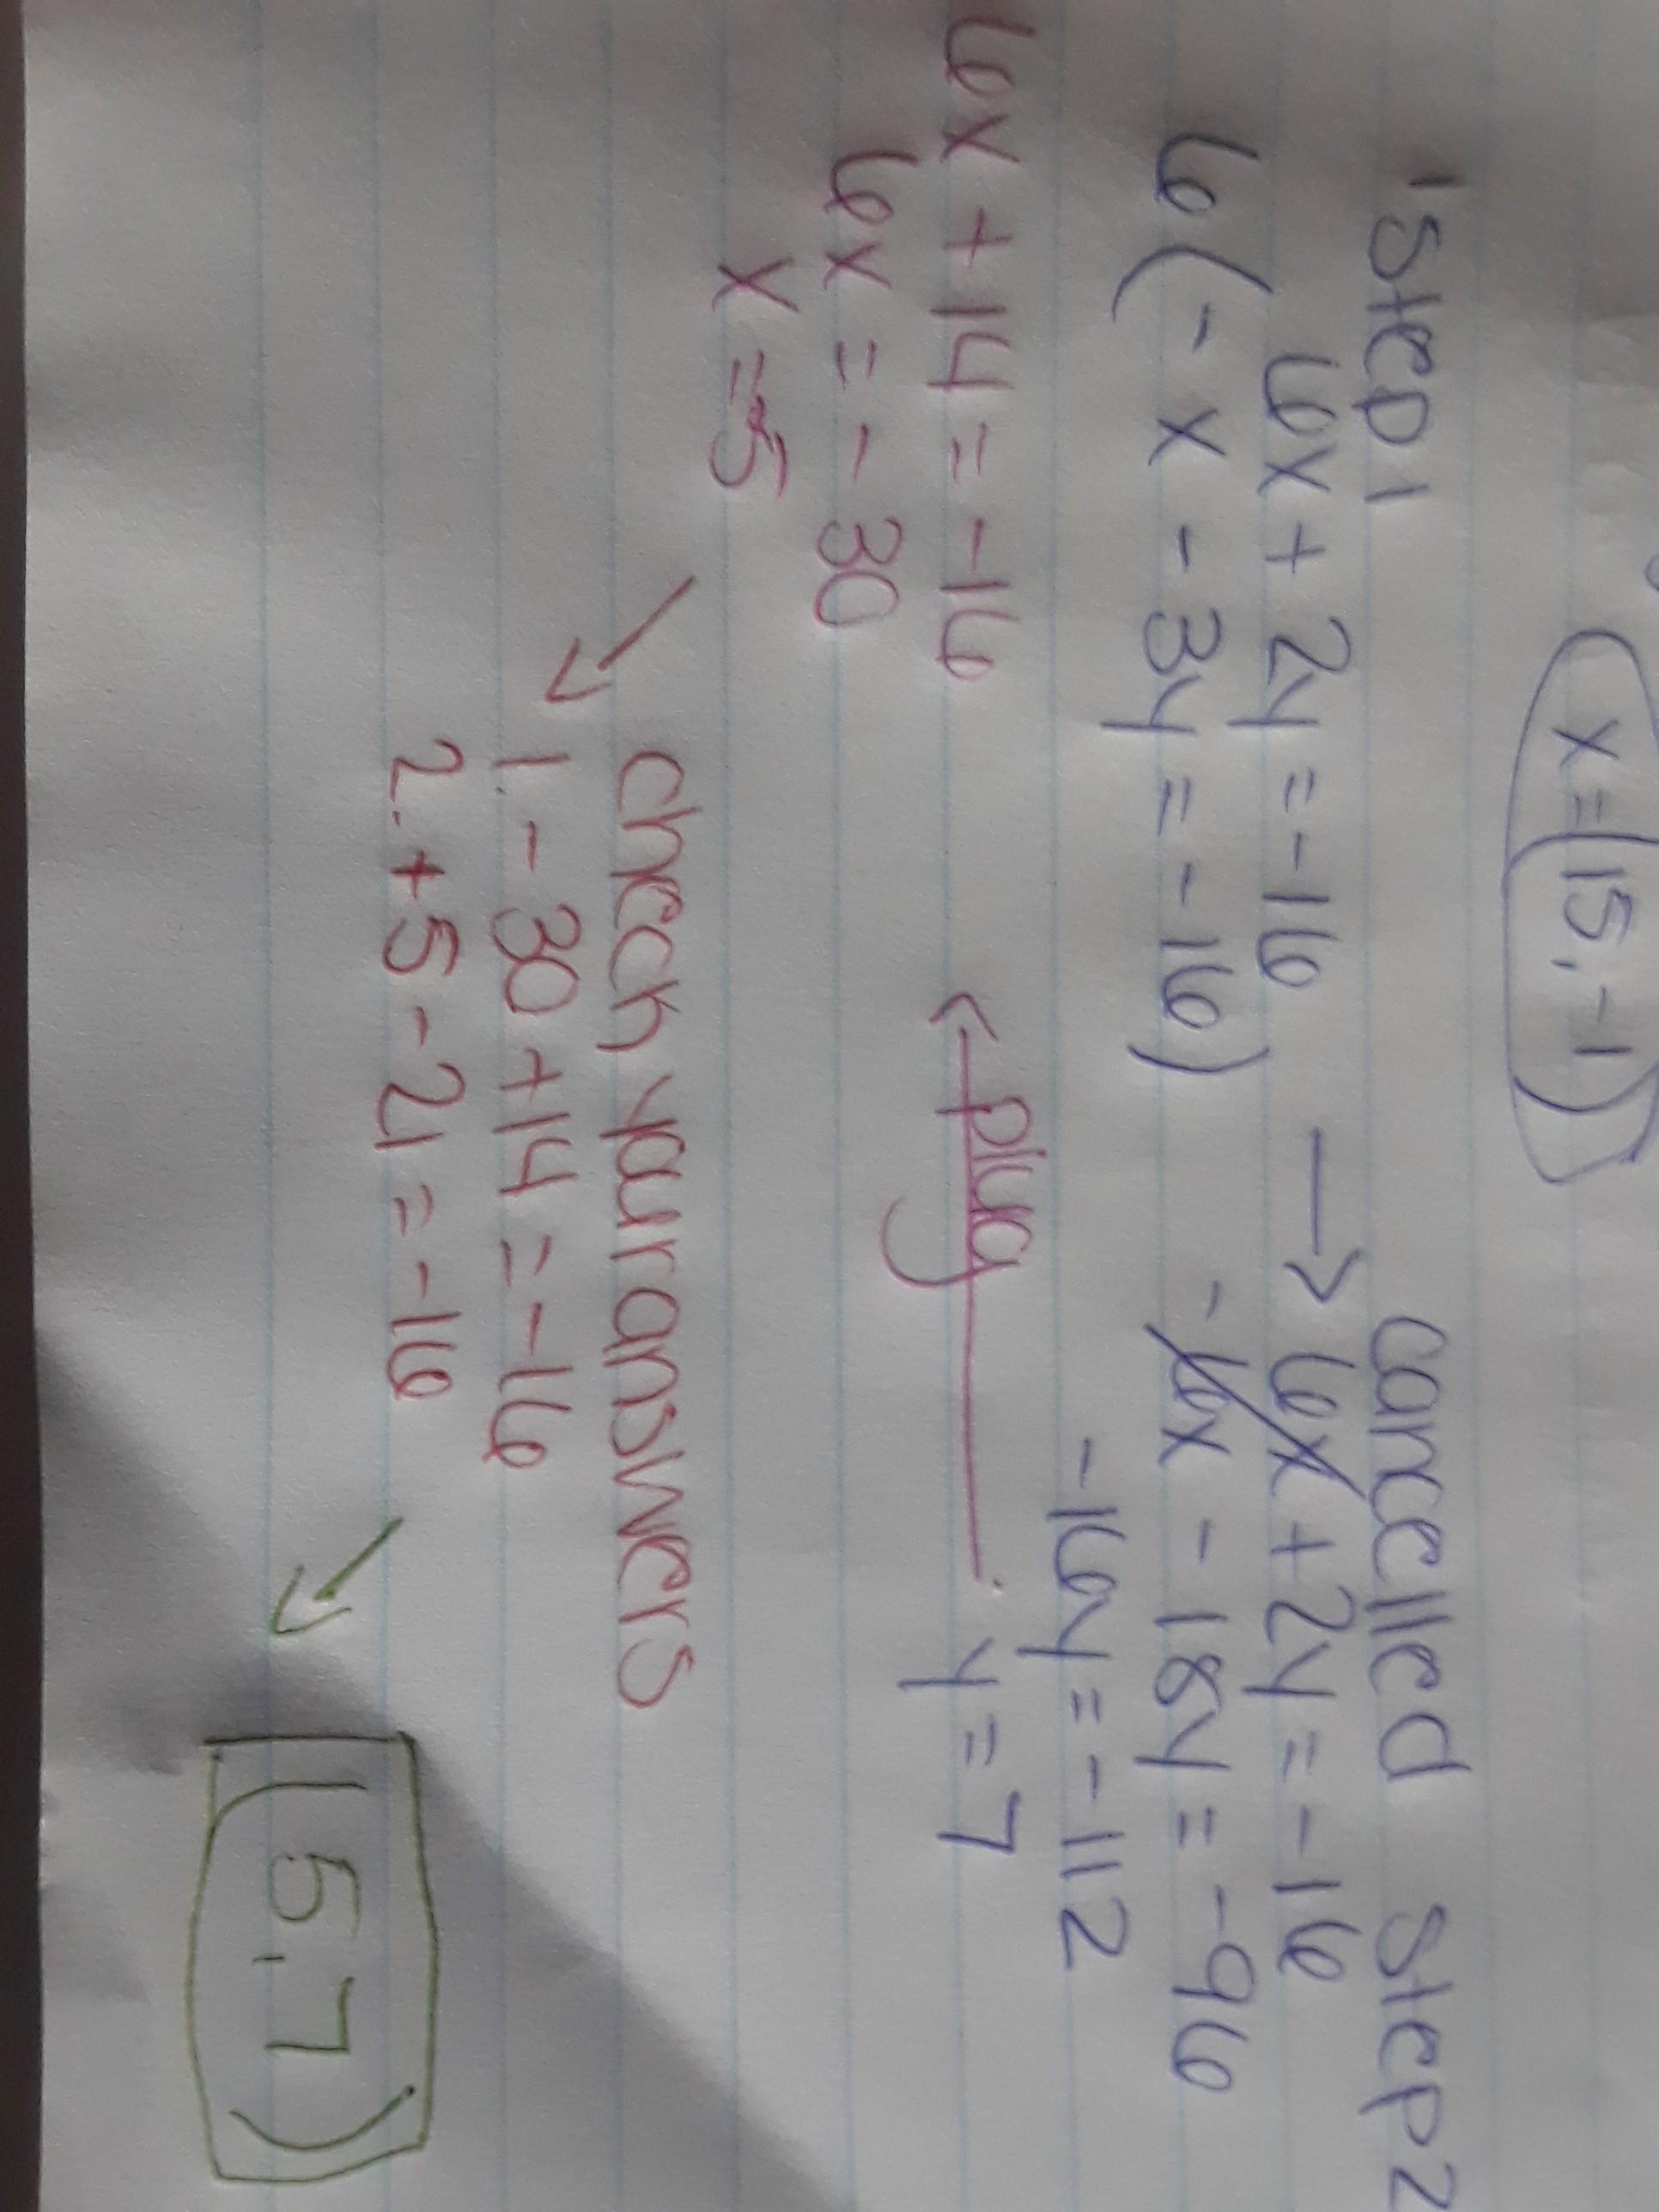 x=(15,-1)
Step 1
6x + 2y = -16
6(- x - 3y = -16)
→
cancelled Step 2
6x + 2y = -16
-6x - 18y = -96
-16y = -112
y = 7
← plug
6x + 14 = -16
6x = - 30
x = -5
check your answers
1. - 30 + 14 = -16
2. + 5 - 21 = -16
(5,7)